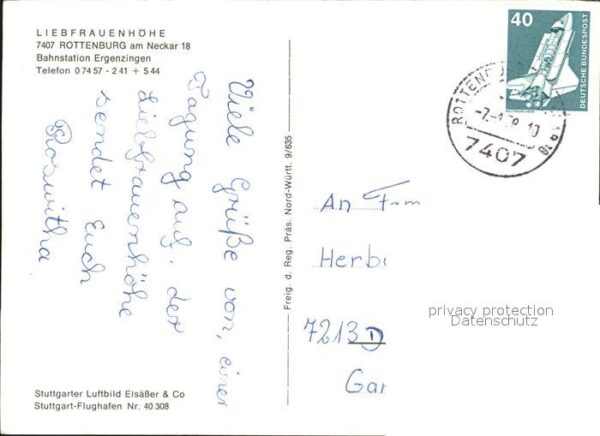 LIEBFRAUENHÖHE
7407 ROTTENBURG am Neckar 18
Bahnstation Ergenzingen
Telefon 0 74 57 - 2 41 + 5 44
Viele Grüße von, einer
Tagung auf. der
Liebfrauenhöhe
sendet Euch
Roswitha
Stuttgarter Luftbild Elsäßer & Co
Stuttgart-Flughafen Nr. 40 308
Freig. d. Reg. Präs. Nord-Württ. 9/635
40
DEUTSCHE BUNDESPOST
7407
An Fam
Herb
7213
Gar
privacy protection
Datenschutz